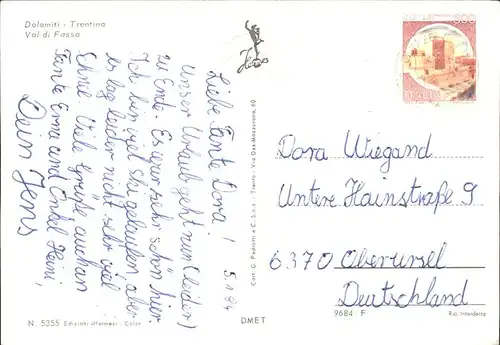 Dolomiti - Trentino
Val di Fassa
5.1.84
Liebe Tante Dora!
Unser Urlaub geht nun (leider)
zu Ende. Es war sehr schön hier.
Ich bin viel Ski gelaufen aber
es lag leider nicht sehr viel
Schnee. Viele Grüße auch an
Tante Erna und Onkel Heini,
Dein Jens
Dora Wiegand
Untere Hainstraße 9
6370 Oberursel
Deutschland
N. 5355 Edizioni «Hermes» - Color
DMET
9684 F
Rip. Interdetta